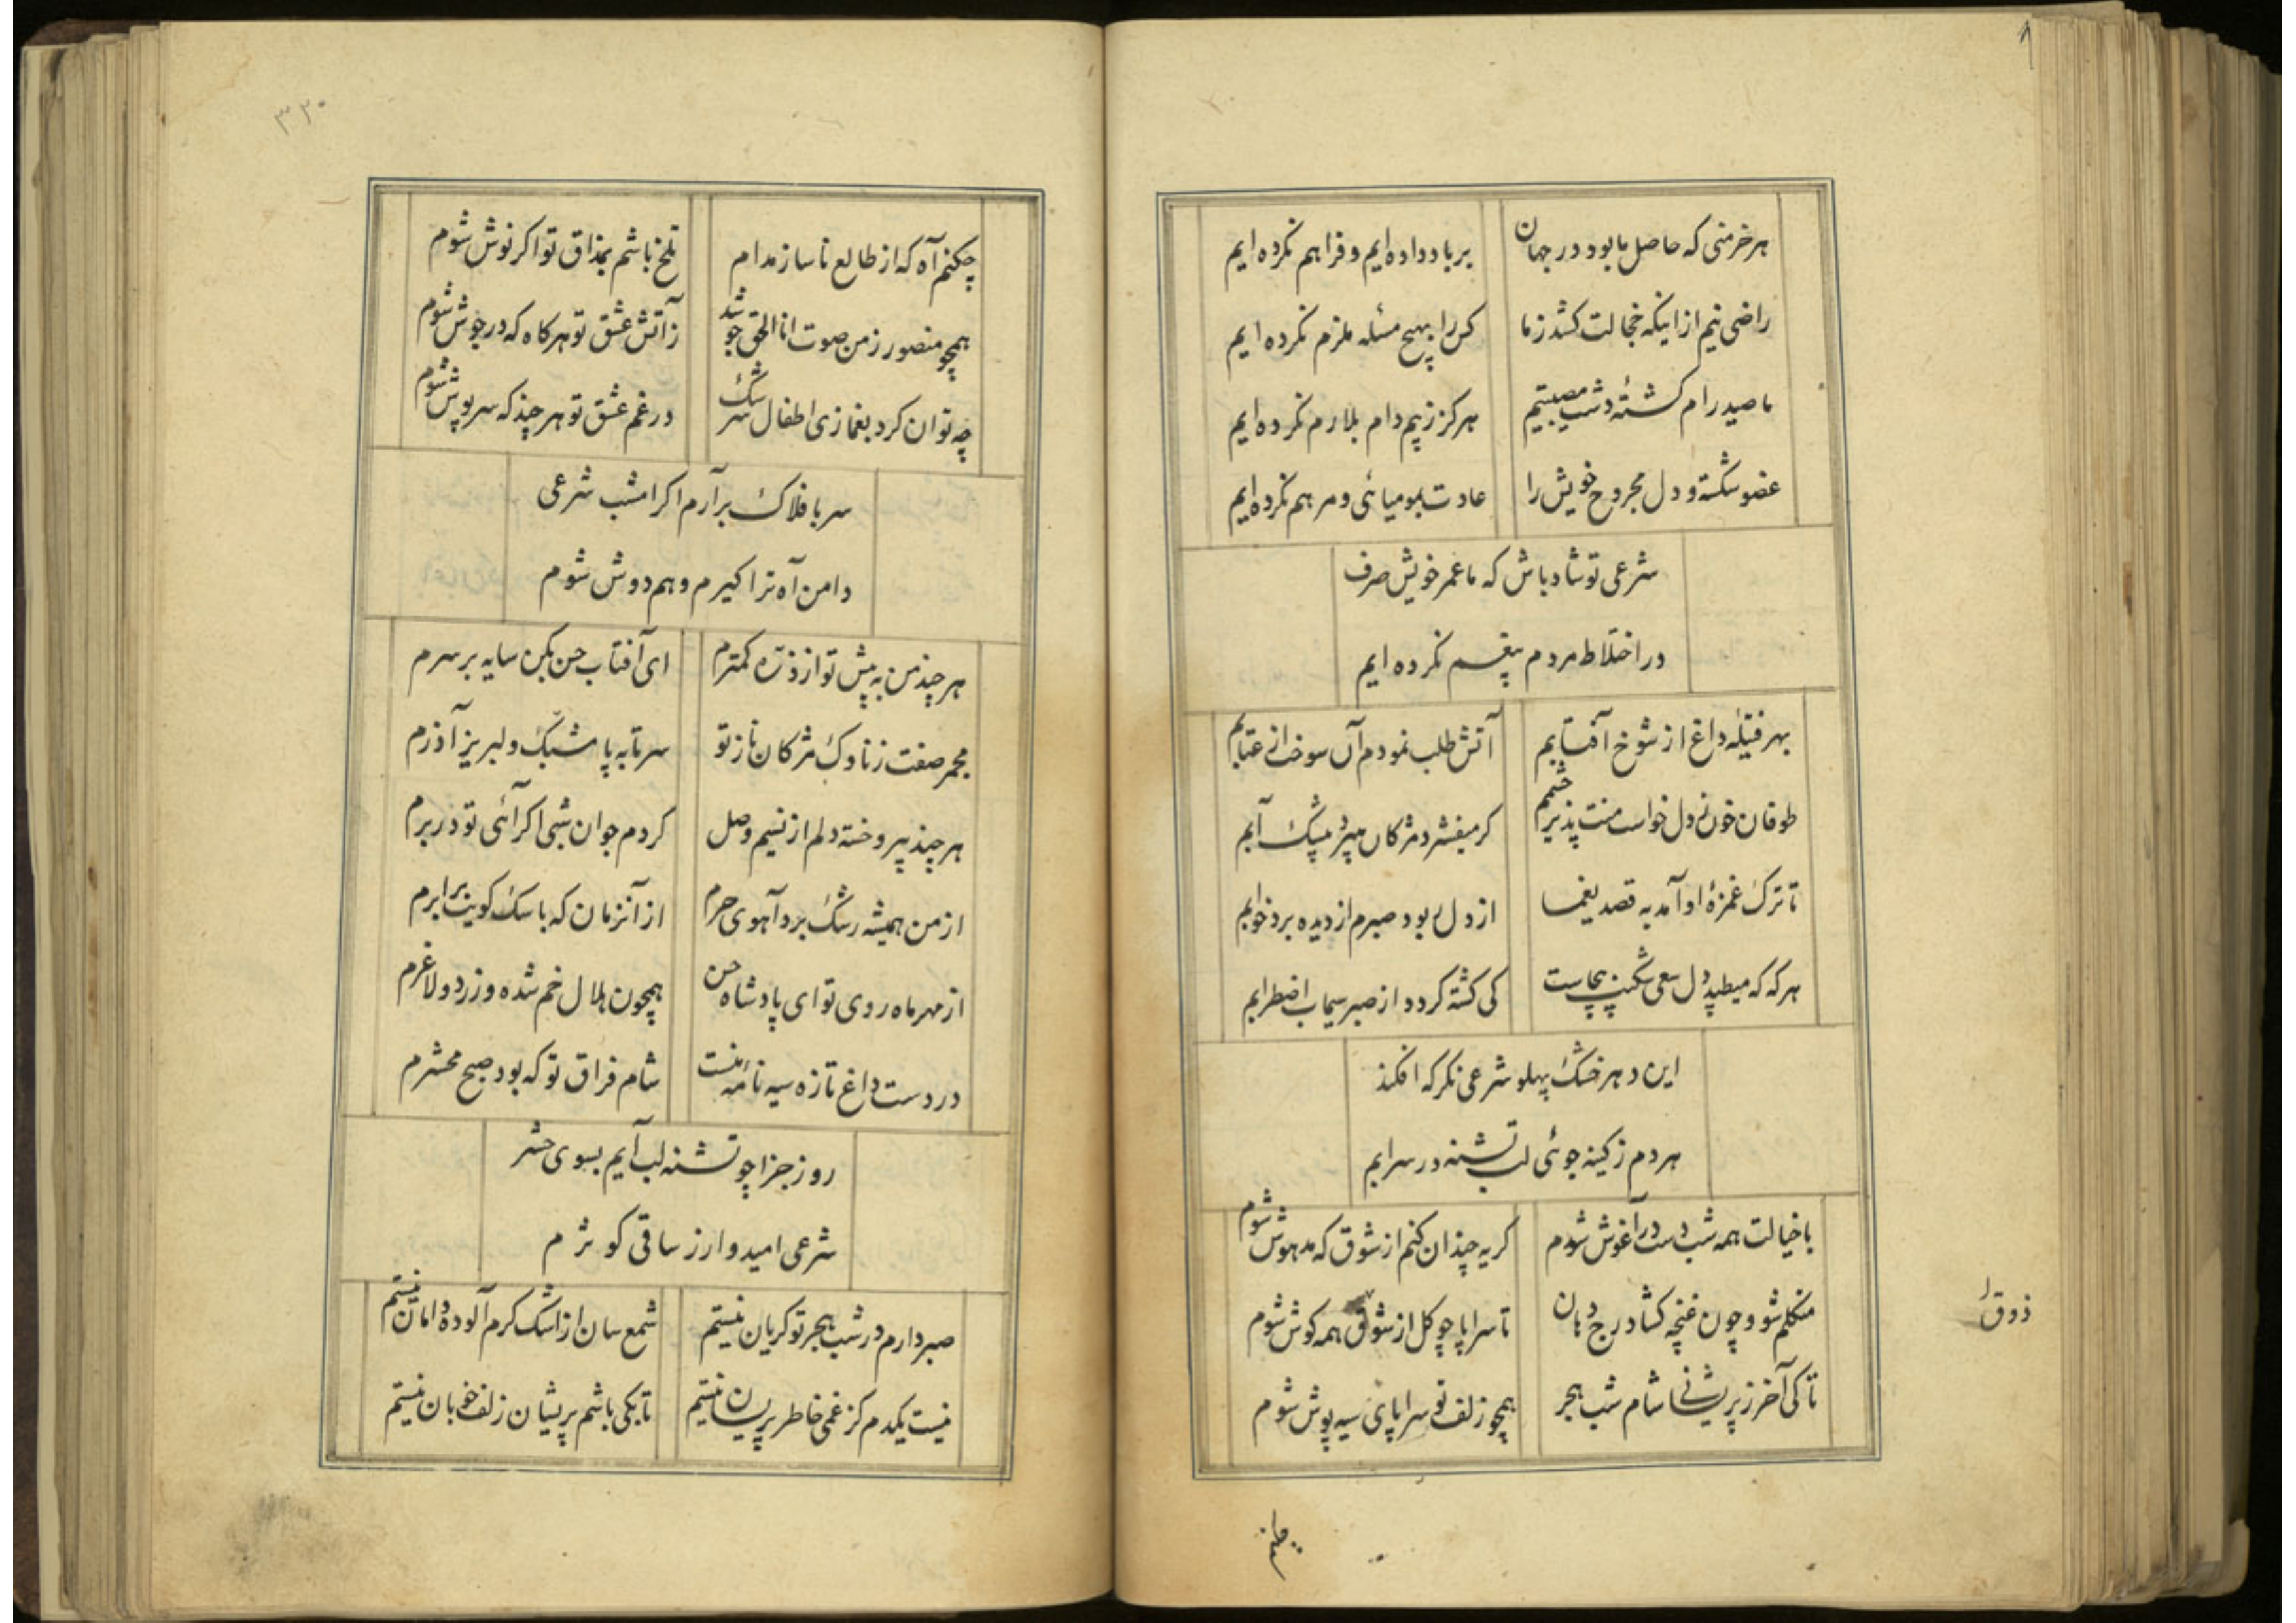 هر خرمنی که حاصل ما بود در جهان بر باد داده ایم و فراهم نکرده ایم
راضی نیم از اینکه خجالت کشد ز ما کس را بهیچ مسئله ملزم نکرده ایم
ما صید رام کشتهٔ دشت مصیبتیم هرکز ز بیم دام بلا رم نکرده ایم
عضو شکسته و دل مجروح خویش را عادت بمومیائی و مرهم نکرده ایم
شرعی تو شاد باش که ما عمر خویش صرف
در اختلاط مردم بیغم نکرده ایم
بهر فتیله داغ از شوخ آفتابیم آتش طلب نمودم آن سوخت از عتابیم
طوفان خون دل خواست منت پذیر چشمم کر میفشرد مژکان آبم
تا ترک غمزهٔ او آمد به قصد یغما از دل ربود صبرم از دیده برد خوابم
هر که که میطپد دل سعی شکیب بیجاست کی کشته کردد از صبر سیماب اضطرابم
این دهر خشک پهلو شرعی نکر که افکند
هر دم ز کینه جوئی لب تشنه در سرابم
با خیالت همه شب دست در آغوش شوم کریه چندان کنم از شوق که مدهوش شوم
متکلم شو و چون غنچه کشا درج دهان تا سراپا چو کل از شوق همه کوش شوم
ذوق
تا کی آخر ز پریشانی شام شب هجر همچو زلف تو سراپای سیه پوش شوم
۳۲۰
چکنم آه که از طالع ناساز مدام تلخ باشم بمذاق تو اکر نوش شوم
همچو منصور ز من صوت انا الحق جوشد ز آتش عشق تو هرکاه که در جوش شوم
چه توان کرد بغمازی اطفال سرشک در غم عشق تو هر چند که سرپوش شوم
سر بافلاک برآرم اکر امشب شرعی
دامن آه ترا کیرم و همدوش شوم
هر چند من به پیش تو از ذره کمترم ای آفتاب حسن بکن سایه بر سرم
مجمر صفت ز ناوک مژکان ناز تو سر تا به پا مشبک و لبریز آذرم
هر چند پیر و خسته دلم از نسیم وصل کردم جوان شبی اکر آئی تو در برم
از من همیشه رشک برد آهوی حرم از آنزمان که با سک کویت برابرم
از مهر ماه روی تو ای پادشاه حسن همچون هلال خم شده و زرد و لاغرم
در دست داغ تازه سیه نامه منست شام فراق تو که بود صبح محشرم
روز جزا چو تشنه لب آیم بسوی حشر
شرعی امیدوار ز ساقی کوثرم
صبر دارم در شب هجر تو کریان نیستم شمع سان از اشک کرم آلوده دامان نیستم
نیست یکدم کز غمی خاطر پریشان نیستم تا بکی باشم پریشان زلف خوبان نیستم